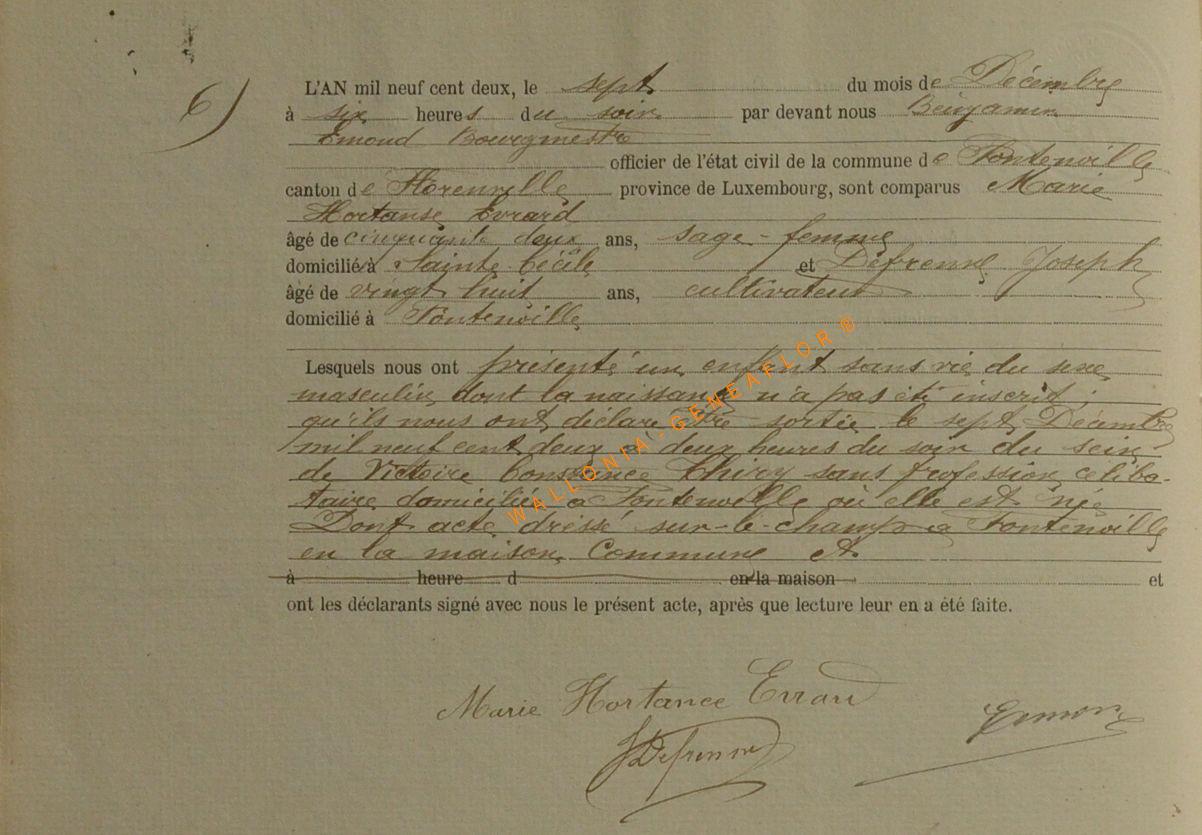 6)
L'AN mil neuf cent deux, le sept du mois de Décembre
à six heures du soir par devant nous Benjamin
Emond Bourgmestre
officier de l'état civil de la commune de Fontenoille
canton de Florenville province de Luxembourg, sont comparus Marie
Hortanse Evrard
âgé de cinquante deux ans, sage-femme
domicilié à Sainte Cécile et Defrenne Joseph
âgé de vingt huit ans, cultivateur
domicilié à Fontenoille
Lesquels nous ont présenté un enfant sans vie du sexe
masculin dont la naissance n'a pas été inscrit,
qu'ils nous ont déclaré être sortie le sept Décembre
mil neuf cent deux à deux heures du soir du sein
de Victoire Constance Thiry sans profession céliba-
taire domiciliée à Fontenoille où elle est né
Dont acte dressé sur-le-champ à Fontenoille
en la maison Commune Et
à heure d en la maison et
ont les déclarants signé avec nous le présent acte, après que lecture leur en a été faite.
Marie Hortance Evrard
J Defrenne
Emond
WALLONIA-GENEAFLOR®